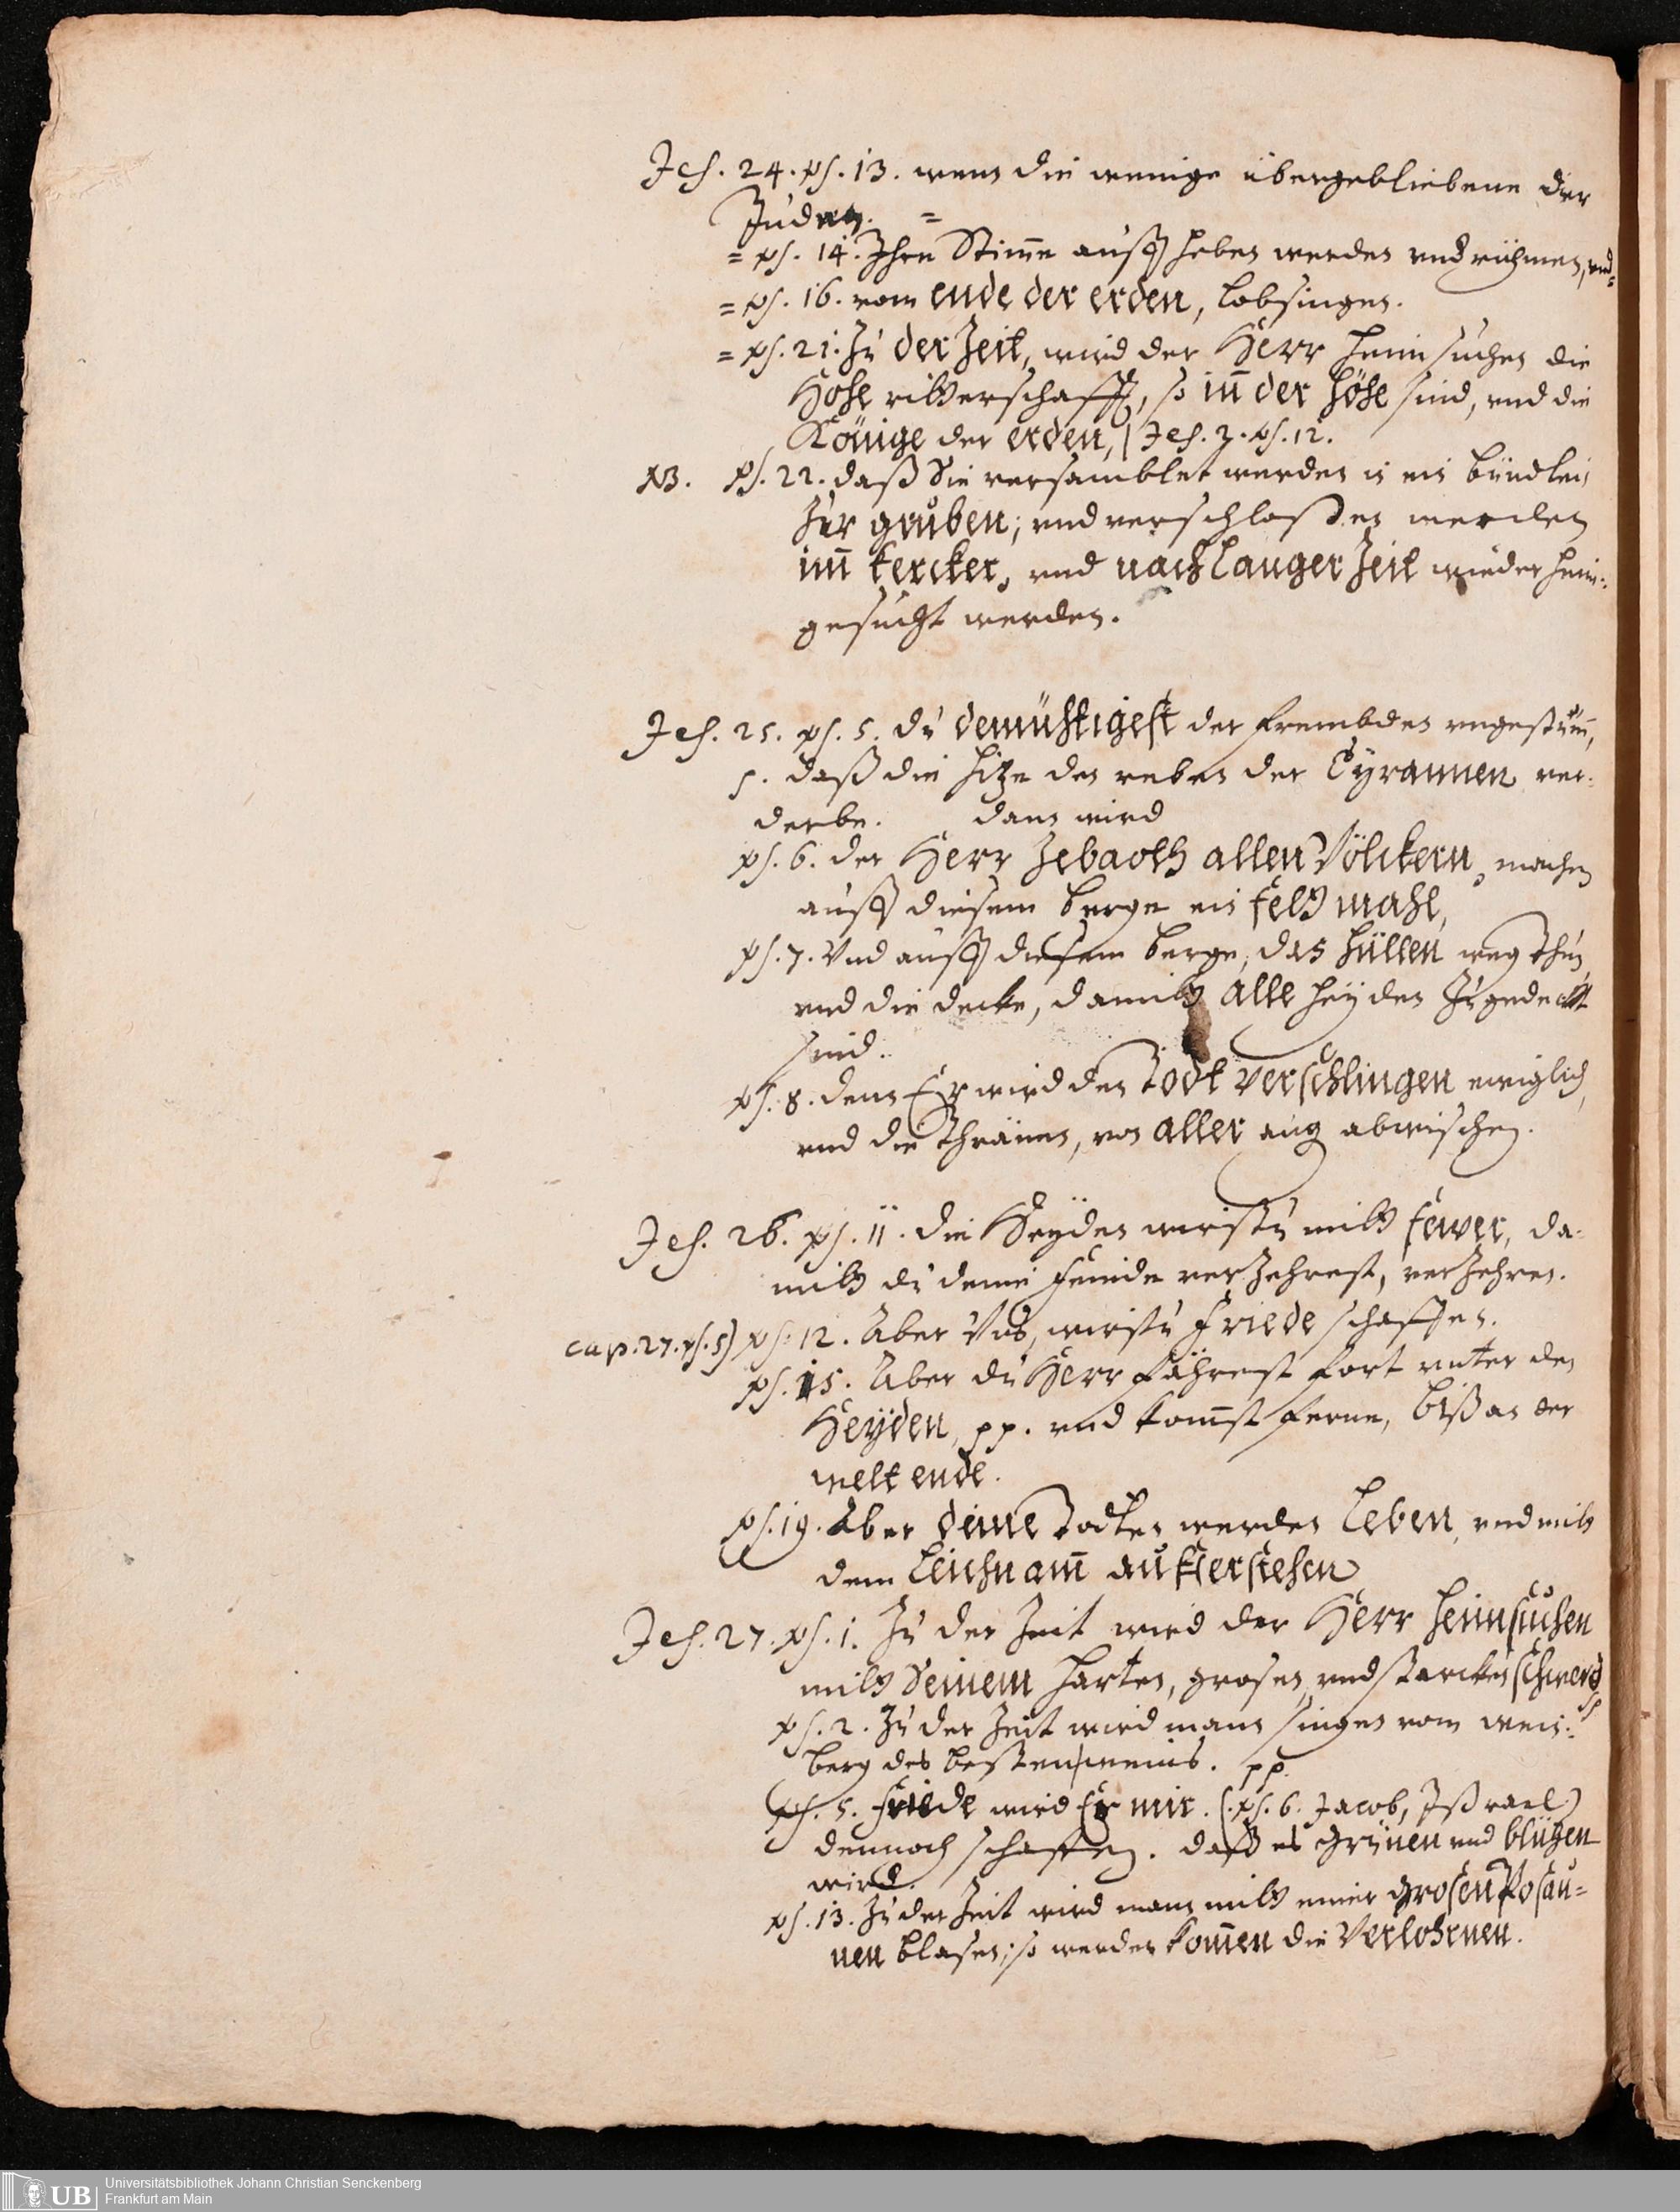 Jes. 24. ps. 13. wenn die wenige übergebliebene der
Juden. =
= ps. 14. Ihre Stim̄e auff heben werden und rühmen, und=
= ps. 16. vom ende der erden, lobsingen.
= ps. 21. Zu der Zeit, wird der Herr heimsuchen die
Hohe ritterschafft, so in̄ der höhe sind, und die
Könige der erden, | Jes. 3. ps. 12.
NB. ps. 22. daß Sie versamblet werden in ein bündlein
Zur gruben; und verschloßen werden
im̄ kercker, und nach langer Zeit wieder heim:
gesucht werden.
Jes. 25. ps. 5. du demühtigest der frembden ungestüm̄,
s. daß die hitze den reben der Tyrannen ver:
derbe. dann wird
ps. 6. der Herr Zebaoth allen Völckern, machen
auff diesem berge ein fett mahl,
ps. 7. Und auff diesem berge, das hüllen weg thun,
und die decke, damitt alle heyden Zugedeckt
sind.
ps. 8. denn Er wird den Todt verschlingen ewiglich,
und die thränen, von aller aug abwischen.
Jes. 26. ps. 11. die Heyden wirstu mitt fewer, da:
mitt du deine feinde verzehrest, verzehren.
cap. 27. ps. 5) ps. 12. Aber Uns, wirstu friede schaffen.
ps. 15. Aber du Herr fährest fort unter den
Heyden, pp. und kom̄st ferne, biß an der
welt ende.
ps. 19. Aber deine Todten werden leben, und mitt
dem leichnam̄ aufferstehen
Jes. 27. ps. 1. Zu der Zeit wird der Herr heimsuchen
mitt Seinem harten, grosen und starcken schwerd
ps. 2. Zu der Zeit wird mann singen vom wein:
berg des besten weins. pp.
ps. 5. friede wird Er mir. (. ps. 6. Jacob, Ißrael.)
dennoch schaffen. daß es grünen und blühen
wird.
ps. 13. Zu der Zeit wird mann mitt einer grosen Posau=
nen blasen; so werden kom̄en die Verlohrnen.
UB
Universitätsbibliothek Johann Christian Senckenberg
Frankfurt am Main